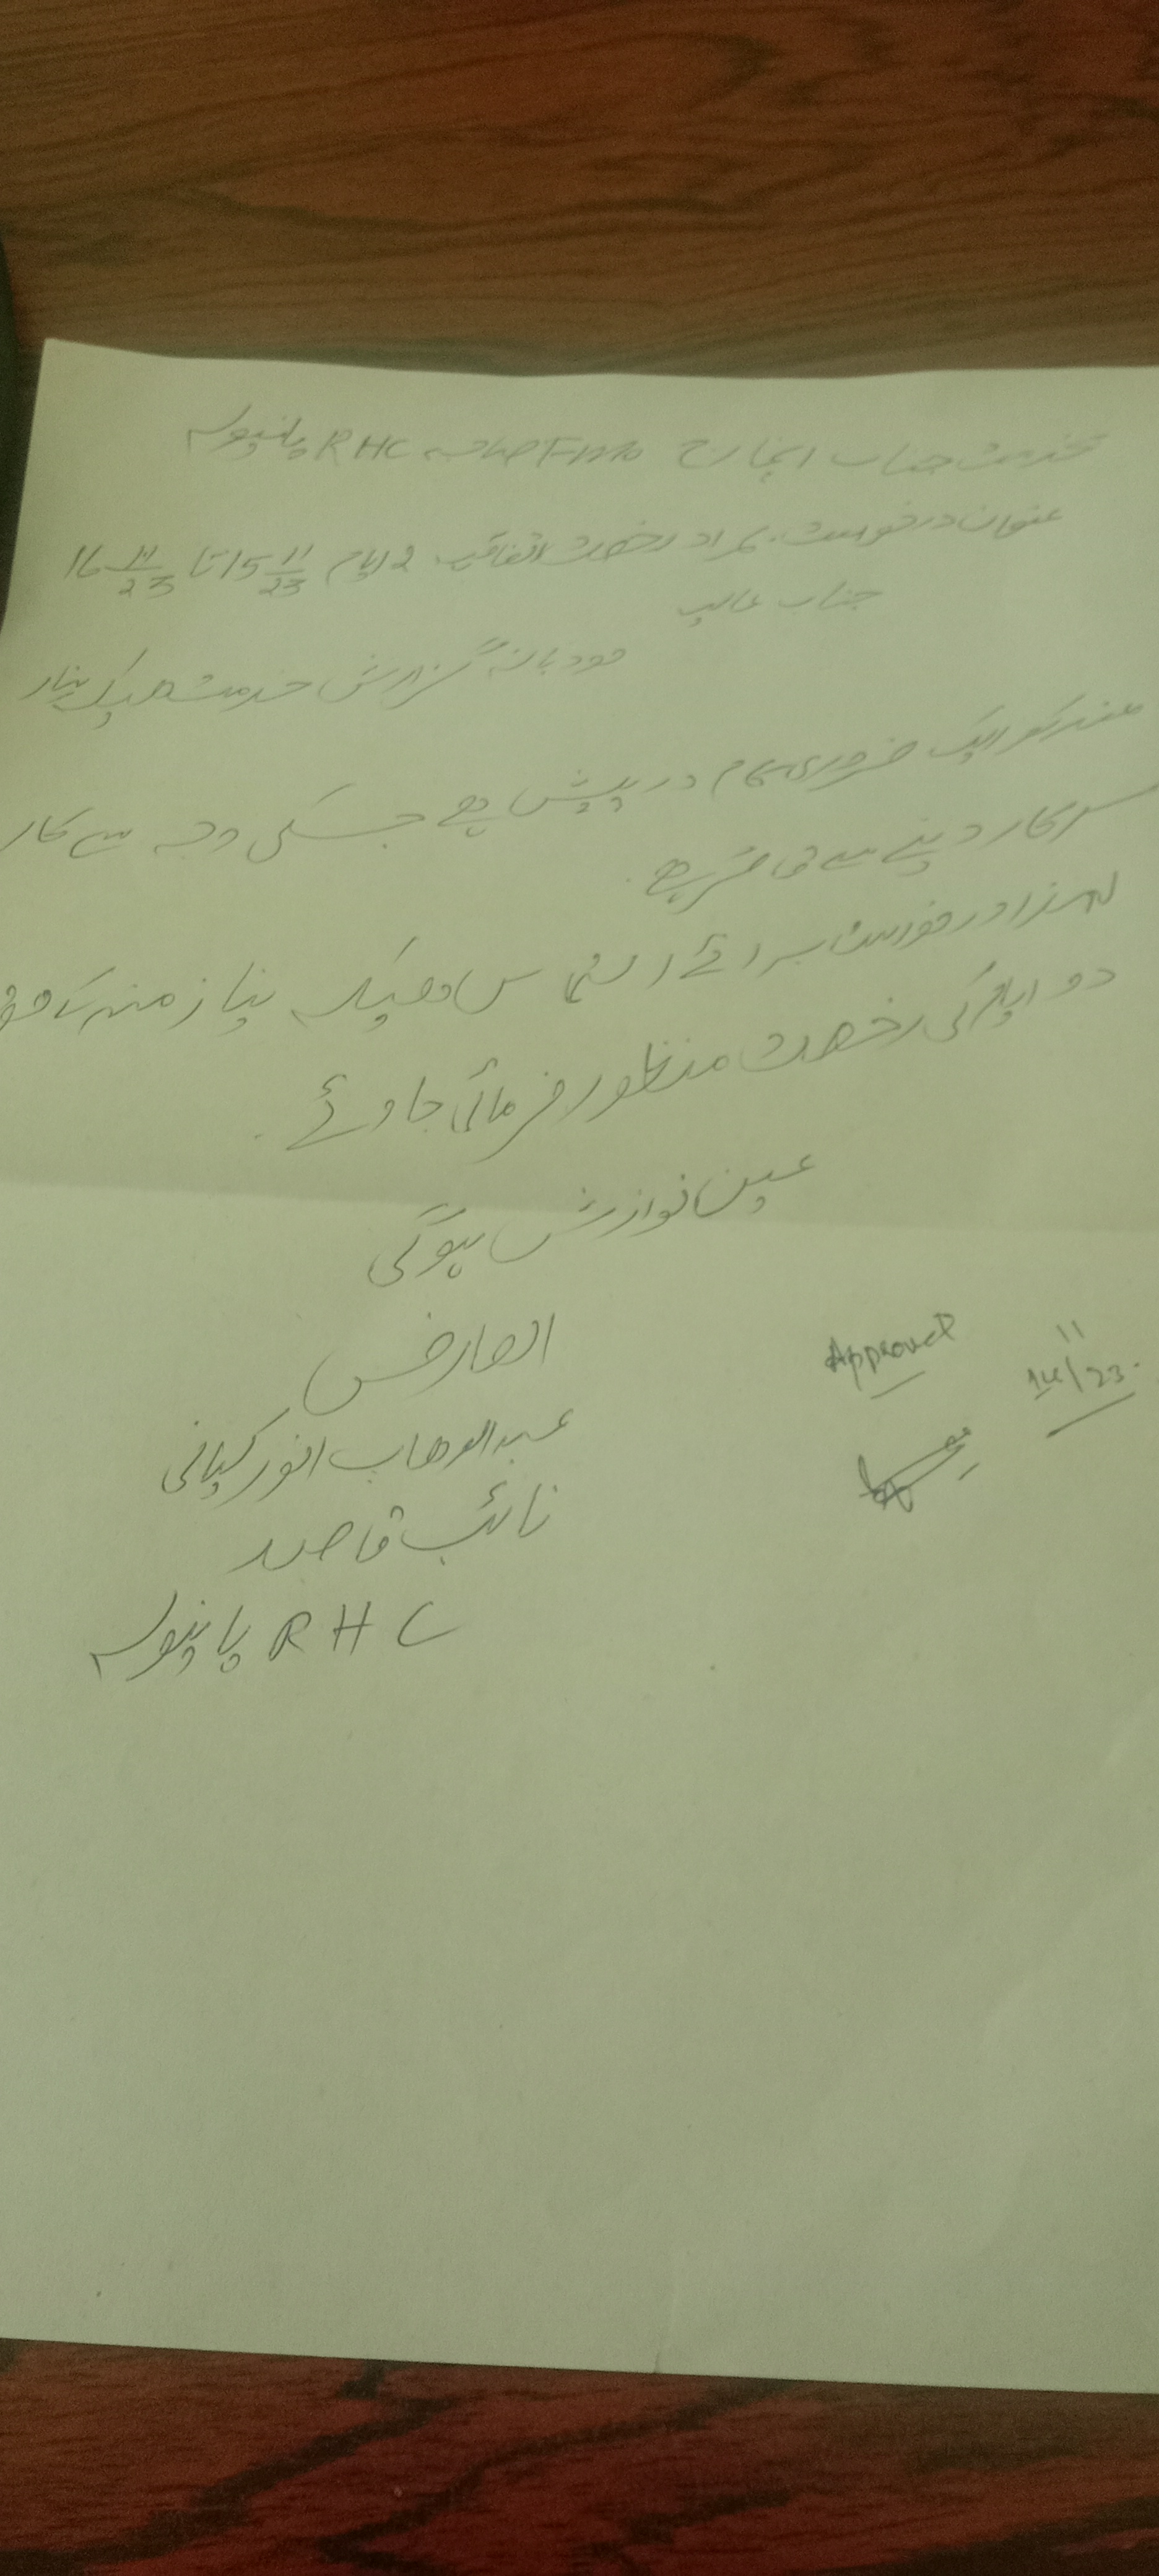 بخدمت جناب انچارج FMO صاحبہ RHC پانیولہ
عنوان درخواست بمراد رخصت اتفاقیہ 2 ایام 15 11/23 تا 16 11/23
جناب عالیہ
مودبانہ گزارش خدمت ھیکہ نیاز
مند کو ایک ضروری کام درپیش ہے جسکی وجہ سے کار
سرکار دینے سے قاصر ہے
لہذا درخواست برائے التماس ھیکہ نیاز مند کے حق
دو ایام کی رخصت منظور فرمائی جاوئے
عین نوازش ہوگی
العارض
عبدالوھاب انور کیانی
نائب قاصد
RHC پانیولہ
Approved
14/11/23